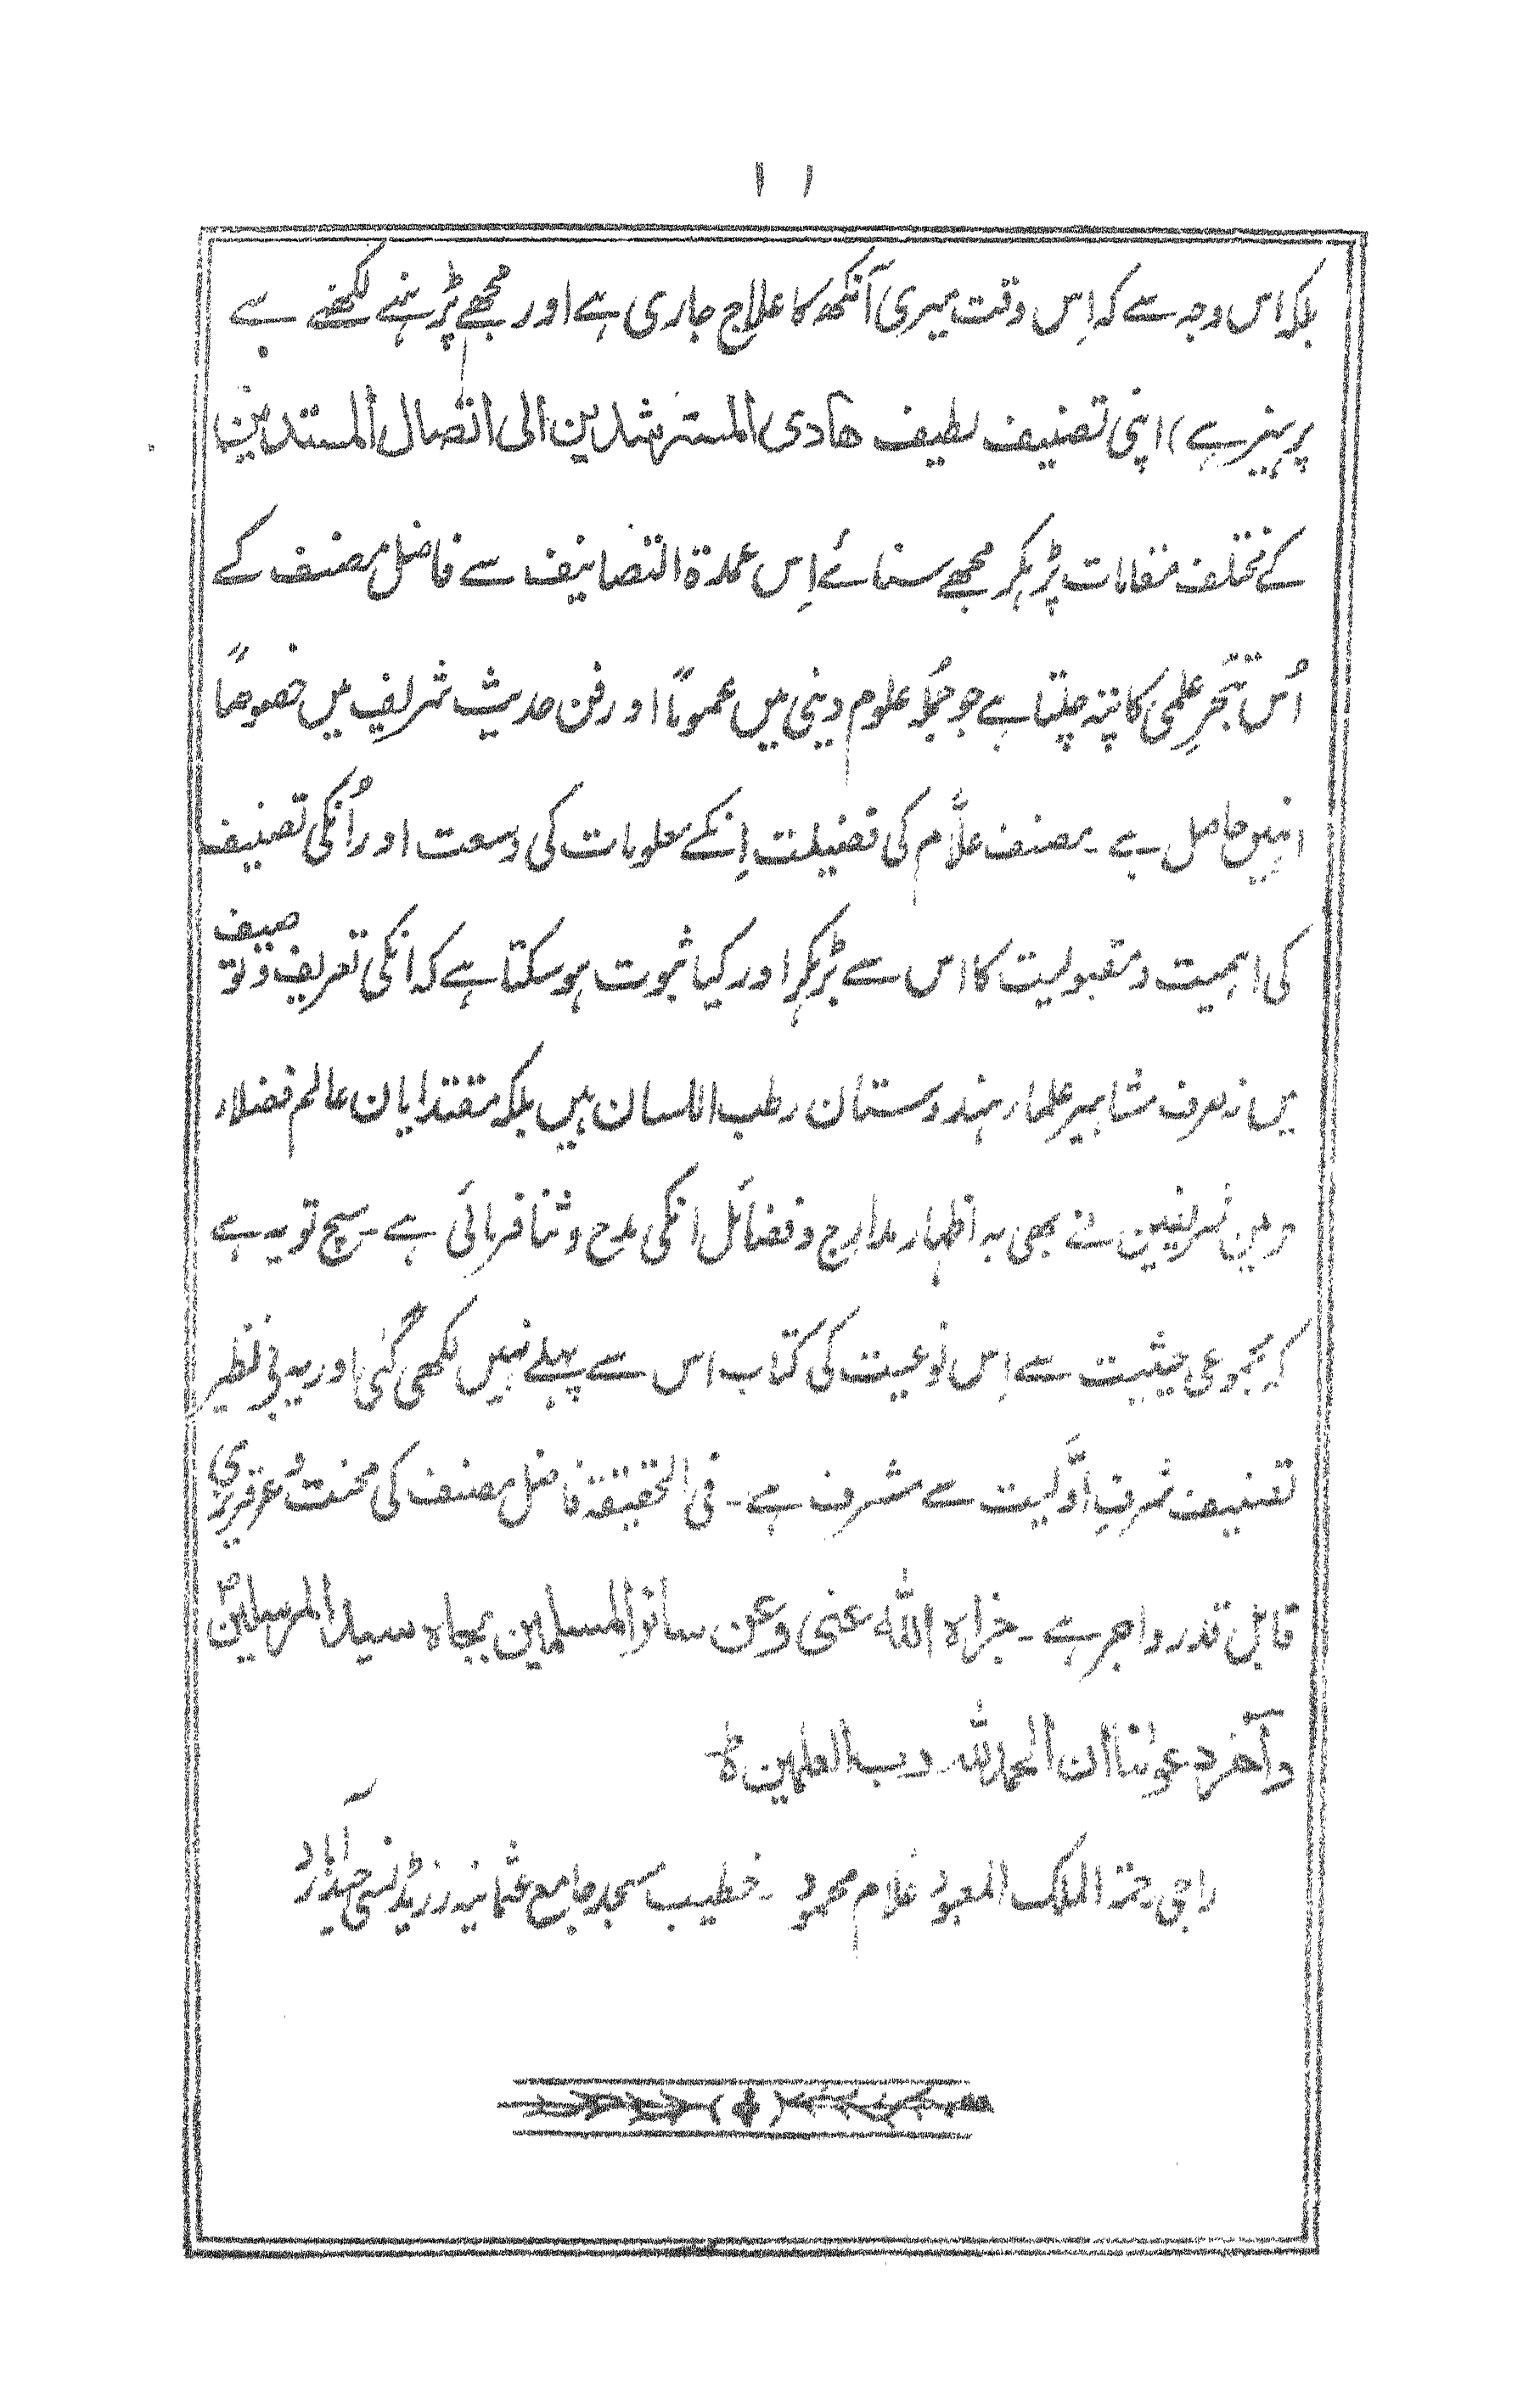 ۱۱
بلکہ اس وجہ سے کہ اِس وقت میری آنکھ کا علاج جاری ہے اور مجھے پڑہنے لکھنے سے
پرہیز ہے) اپنی تصنیف لطیف ھادی المسترشدین الی اتصال المسندین
کے مختلف مقامات پڑہکر مجھے سنائے اِس عمدۃ التصانیف سے فاضل مصنف کے
اُس تبحّرِ علمی کا پتہ چلتا ہے جو جملہ علوم دینی میں عموماً اور فن حدیث شریف میں خصوصاً
انہیں حاصل ہے ۔ مصنف علاّم کی فضیلت اِنکے معلومات کی وسعت اور اُنکی تصنیف
کی اہمیت و مقبولیت کا اس سے بڑہکر اور کیا ثبوت ہو سکتا ہے کہ انکی تعریف و توصیف
میں نہ صرف مشاہیر علماء ہندوستان رطب اللسان ہیں بلکہ مقتدایان عالم فضلاء
حرمین شریفین نے بھی بہ اظہار مدارج و فضائل انکی مدح و ثنا فرمائی ہے ۔ سچ تو یہ ہے
کہ مجموعی حیثیت سے اِس نوعیت کی کتاب اس سے پہلے نہیں لکھی گئی اور یہ بی نظیر
تصنیف شرفِ اوّلیت سے مشرف ہے ۔ فی الحقیقۃ فاضل مصنف کی محنت و عرقریزی
قابل قدر و اجر ہے ۔ جزاہ اللّٰہ عنی و عن سائر المسلمین بجاہ سید المرسلینؐ
و آخر دعوٰنا ان الحمد للّٰہ رب العٰلمین ط
راجی رحمۃ الملک المعبود غلام محمود ۔ خطیب مسجد جامع عثمانیہ رزیڈنسی حیدرآباد